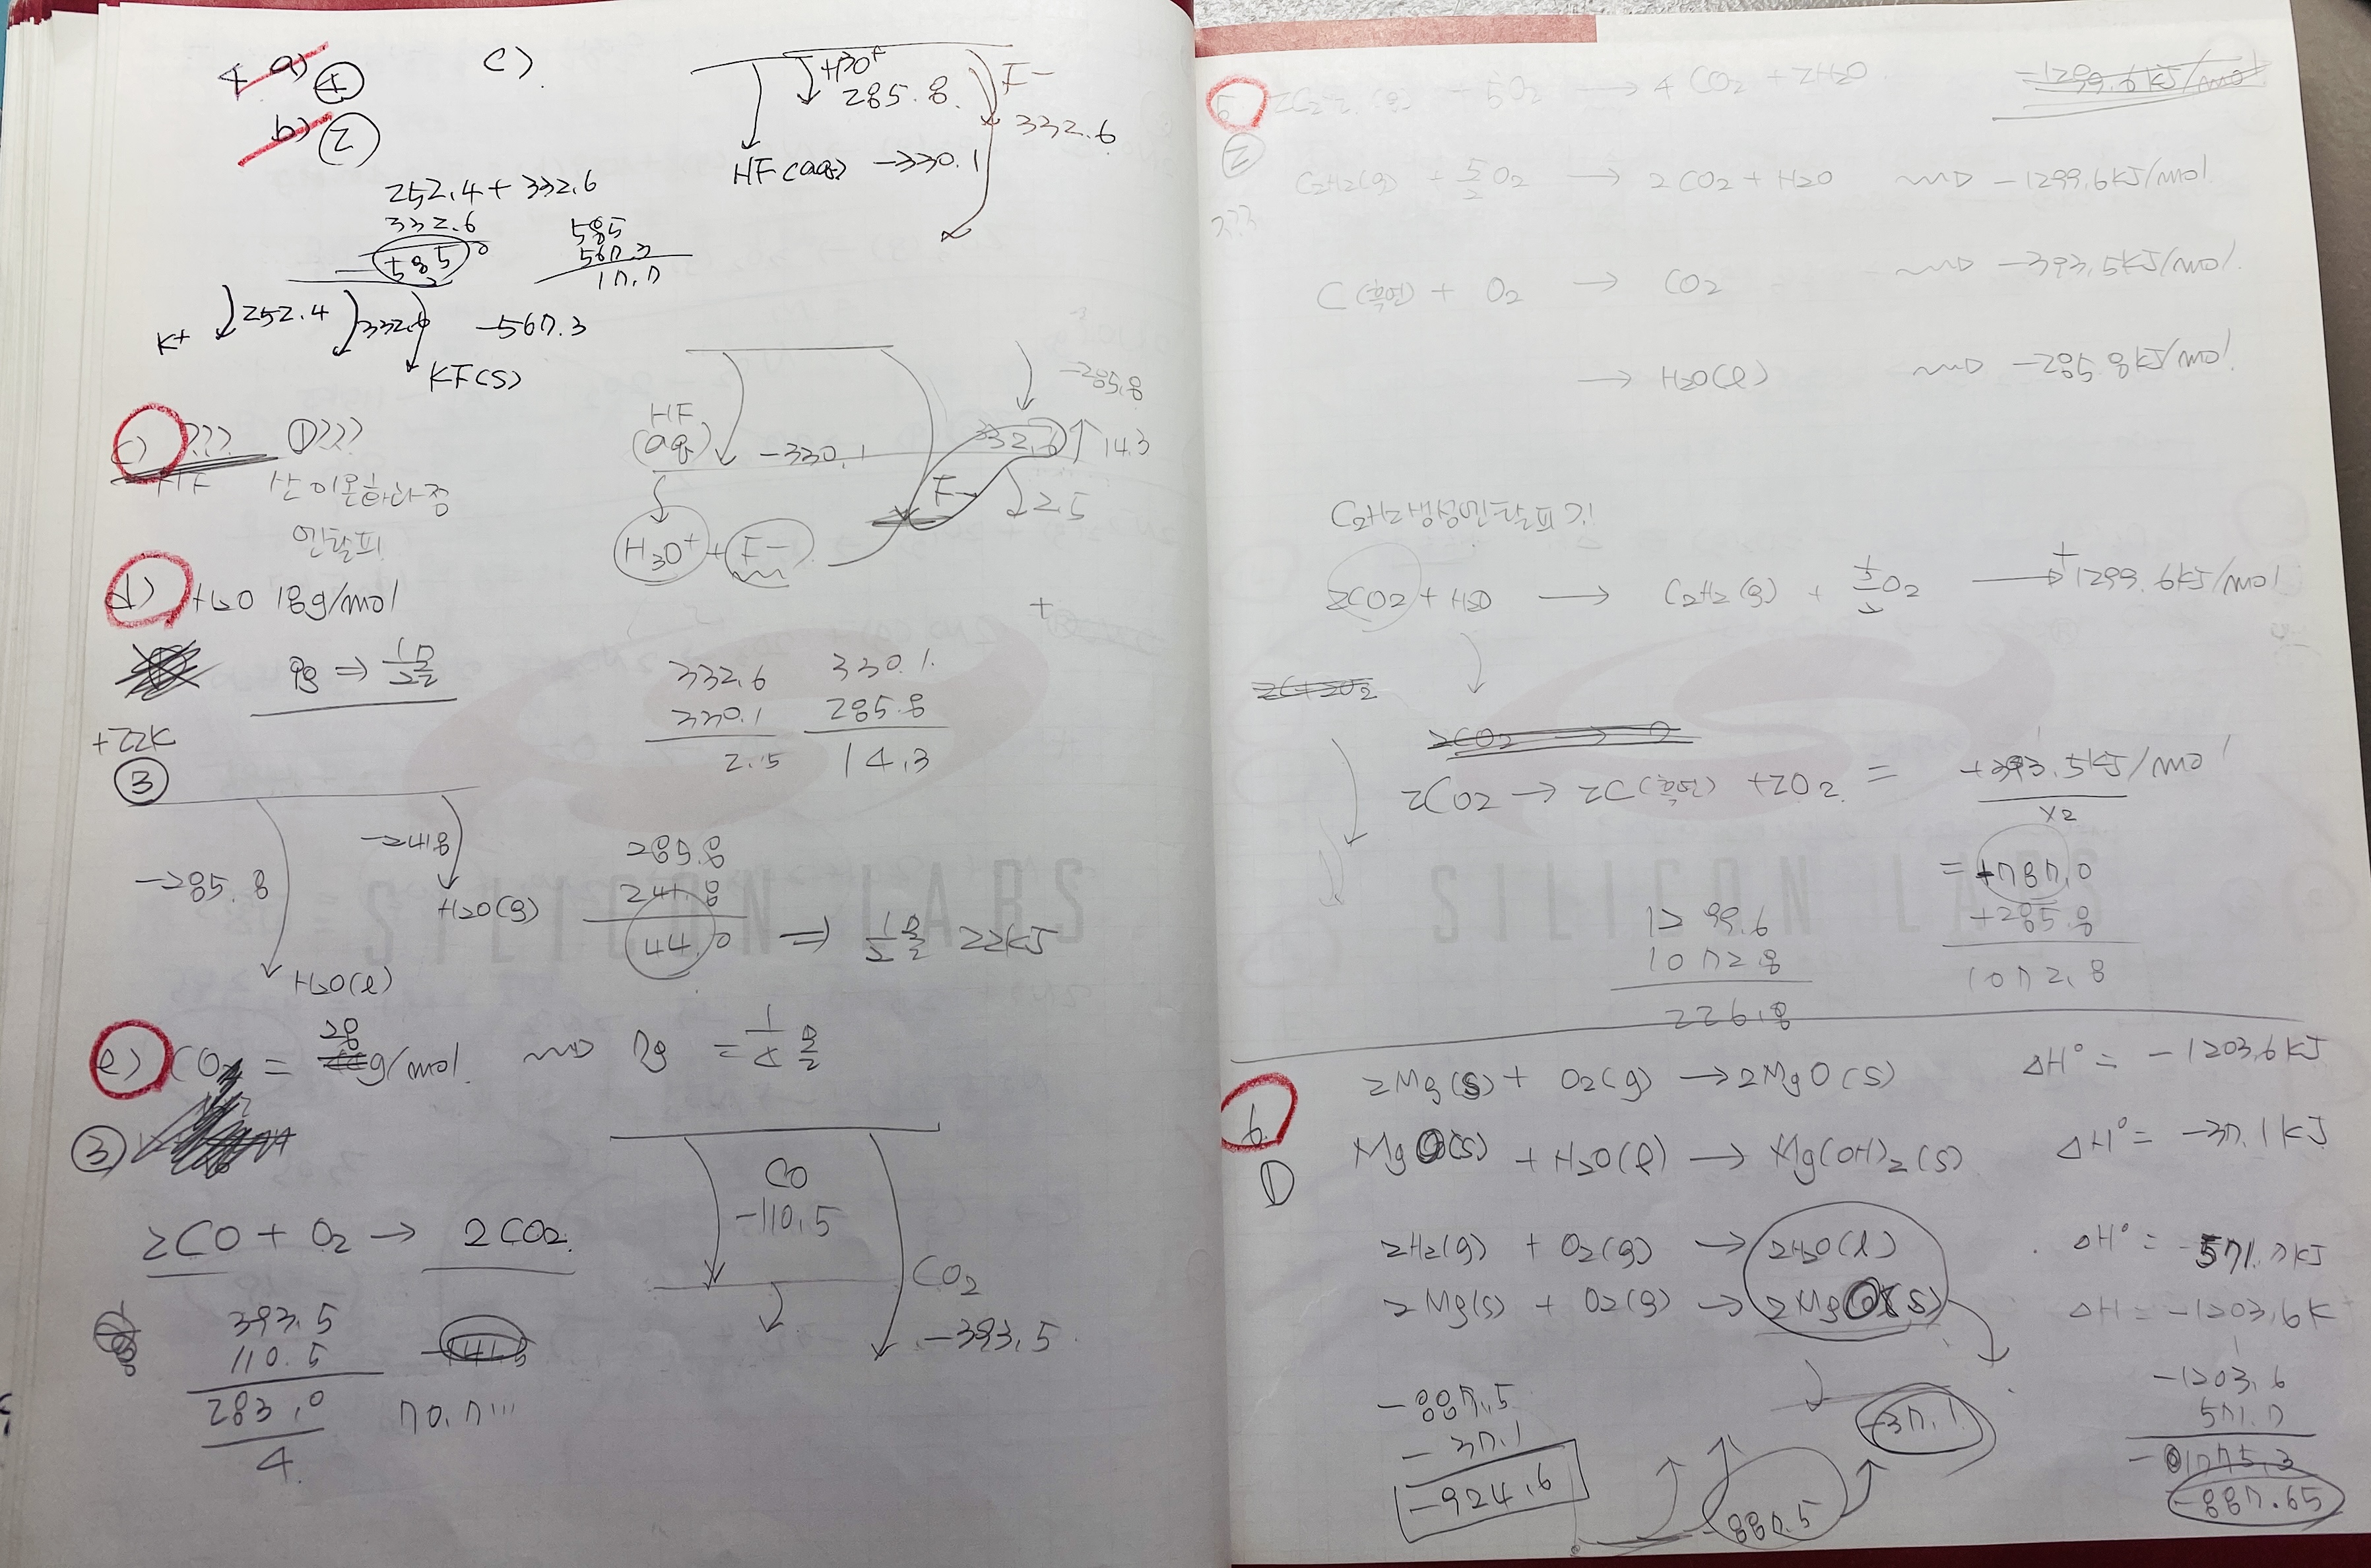 4 a) ④
b) ②
c)
H3O+
285.8.
F-
332.6
HF(aq) -330.1
252.4 + 332.6
332.6
585
585
567.3
17.7
K+
252.4
332.6
-567.3
KF(s)
c) ??? ①???
HF 산 이온화과정
엔탈피
HF
(aq)
-330.1
-285.8
332.6
14.3
F-
2.5
H3O+ + F-
d) H2O 18g/mol
9g ⇒ 1/2 몰
+22K
③
332.6
330.1
2.5
330.1.
285.8
14.3
+
-285.8
-241.8
H2O(g)
H2O(l)
285.8
241.8
44.0 ⇒ 1/2몰 22kJ
e) CO = 28 g/mol. 7g = 1/4 몰
③
CO
-110.5
CO2
-393.5
2CO + O2 → 2CO2.
393.5
110.5
283.0
4
70.7...
5 2C2H2(g) + 5O2 → 4CO2 + 2H2O -1299.6kJ/mol
②
???
C2H2(g) + 5/2 O2 → 2CO2 + H2O -1299.6kJ/mol
C(흑연) + O2 → CO2 -393.5kJ/mol.
→ H2O(l) -285.8kJ/mol.
C2H2생성엔탈피?!
2CO2 + H2O → C2H2(g) + 5/2 O2 → +1299.6kJ/mol
2C+2O2
2CO2 →
2CO2 → 2C(흑연) + 2O2 = +393.5kJ/mol
x2
= +787.0
+285.8
1072.8
1299.6
1072.8
226.8
SILICON LABS
SILICON LABS
6 2Mg(s) + O2(g) → 2MgO(s) ΔH° = -1203.6kJ
① MgO(s) + H2O(l) → Mg(OH)2(s) ΔH° = -37.1kJ
2H2(g) + O2(g) → 2H2O(l) ΔH° = -571.7kJ
2Mg(s) + O2(g) → 2MgO(s) ΔH = -1203.6K
-1203.6
571.7
-1775.3
-887.65
-887.5
-37.1
-924.6
-37.1
-887.5